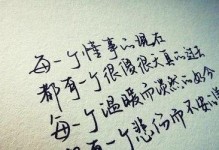 每一个懂事的现在
都有一个很傻很天真的过去
每一个温暖而淡然的如今
都有一个悲伤而不安的